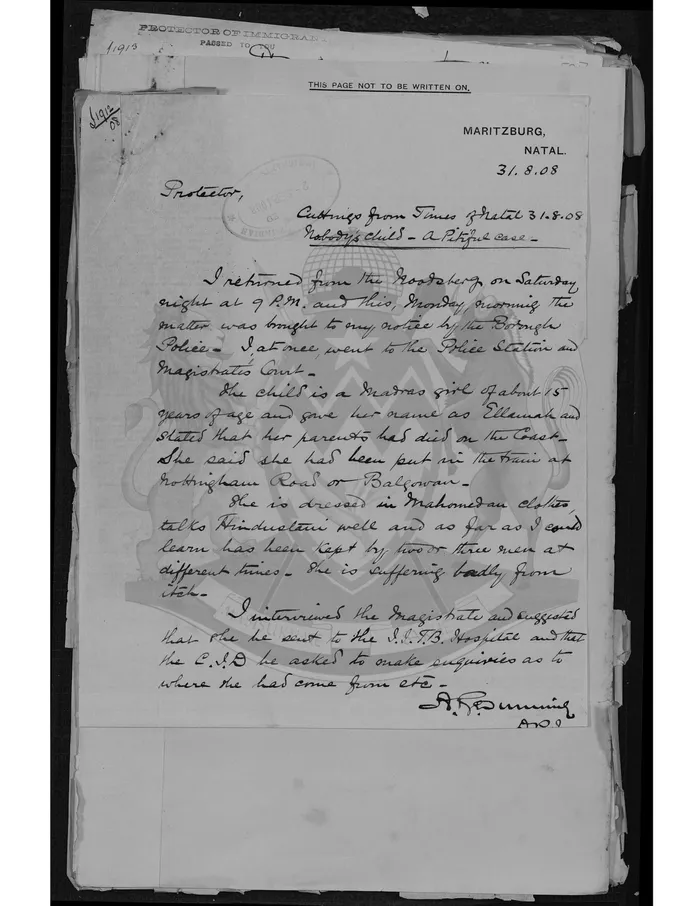 1913
PROTECTOR OF IMMIGRAN
PASSED TO YOU
THIS PAGE NOT TO BE WRITTEN ON.
MARITZBURG,
NATAL.
31.8.08
Protector,
Cuttings from Times of Natal 31.8.08
Nobody's child - A Pitiful case -
I returned from the Noodsberg on Saturday
night at 9 P.M. and this, Monday, morning the
matter was brought to my notice by the Borough
Police - I, at once, went to the Police Station and
Magistrates Court -
The child is a Madras girl of about 15
years of age and gave her name as Ellamah and
stated that her parents had died on the Coast -
She said she had been put in the train at
Nottingham Road or Balgowan -
She is dressed in Mahomedan clothes,
talks Hindustani well and as far as I could
learn has been kept by two or three men at
different times - She is suffering badly from
itch -
I interviewed the Magistrate and suggested
that she be sent to the I.I.T.B. Hospital and that
the C.I.D be asked to make enquiries as to
where she had come from etc -
A. R. Dunning